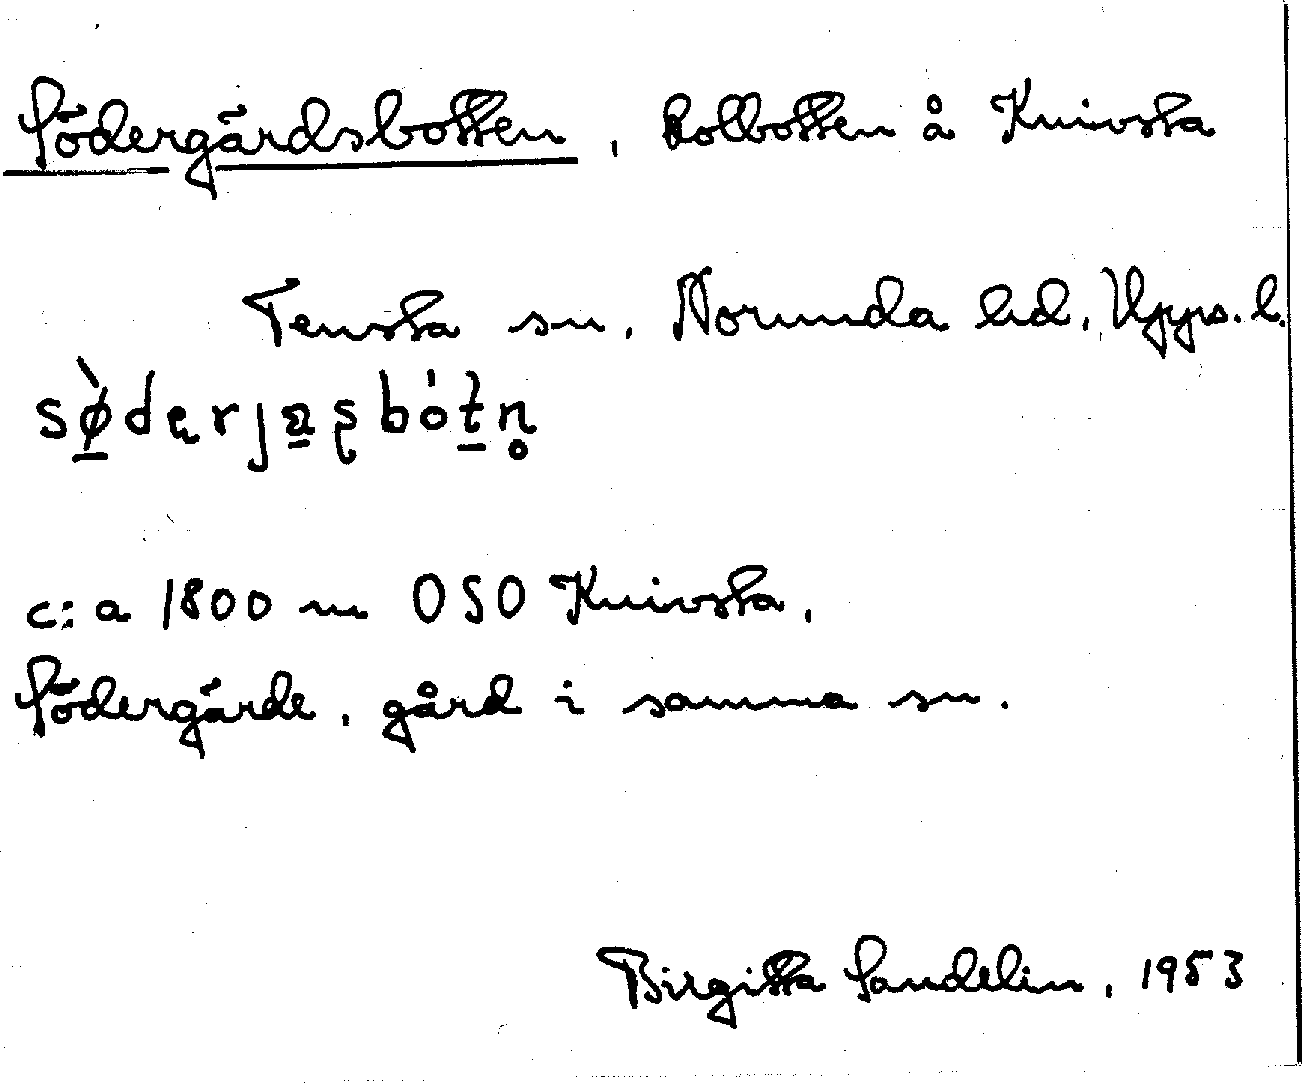 Södergärdsbotten, Kolbotten å Knivsta
Tensta sn, Norunda hd, Upps. l.
sø̀dęrjąʂbȯtn̥
c:a 1800 m OSO Knivsta,
Södergärde, gård i samma sn.
Birgitta Sandelin, 1953